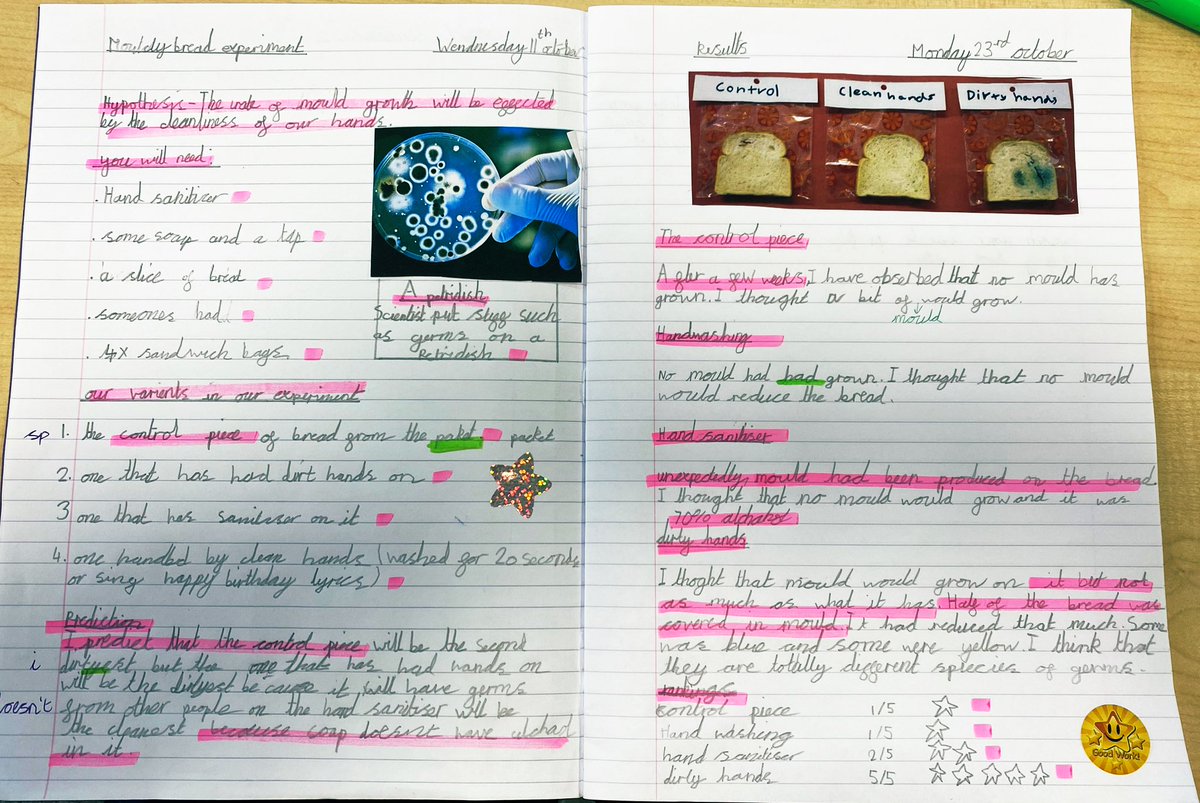 Mouldy bread experiment
Wendnesday 11th october
Hypothesis - The rate of mould growth will be effected
by the cleanliness of our hands.
you will need:
. Hand sanitizer
. some soap and a tap
. a slice of bread
. someones had
. 4x sandwich bags
A petridish
Scientist put stuff such
as germs on a
Petridish
our varients in our experiment
sp 1. the control piece of bread from the paket. packet
2. one that has had dirt hands on
3 one that has sanitiser on it
4. one handled by clean hands (washed for 20 seconds
or sing happy birthday lyrics)
Prediction
I predict that the control piece will be the second
i dirtyest but the one that has had hands on
will be the dirtyest because it will have germs
doesn't from other people on the hand sanitiser will be
the cleanest because soap doesn't have in it.
Results
Monday 23rd october
Control
Clean hands
Dirty hands
The control piece
After a few weeks, I have observed that no mould has
grown. I thought a bit of would grow.
mould
Handwashing
No mould had had grown. I thought that no mould
would reduce the bread.
Hand sanitiser
unexpectedly mould had been produced on the bread
I thought that no mould would grow and it was
70% alchahol
dirty hands
I thoght that mould would grow on it but not
as much as what it has. Half of the bread was
covered in mould. It had reduced that much. Some
was blue and some were yellow. I think that
they are totally different species of germs.
rankings
control piece 1/5
Hand washing 1/5
hand sanitiser 2/5
dirty hands 5/5
Good Work!